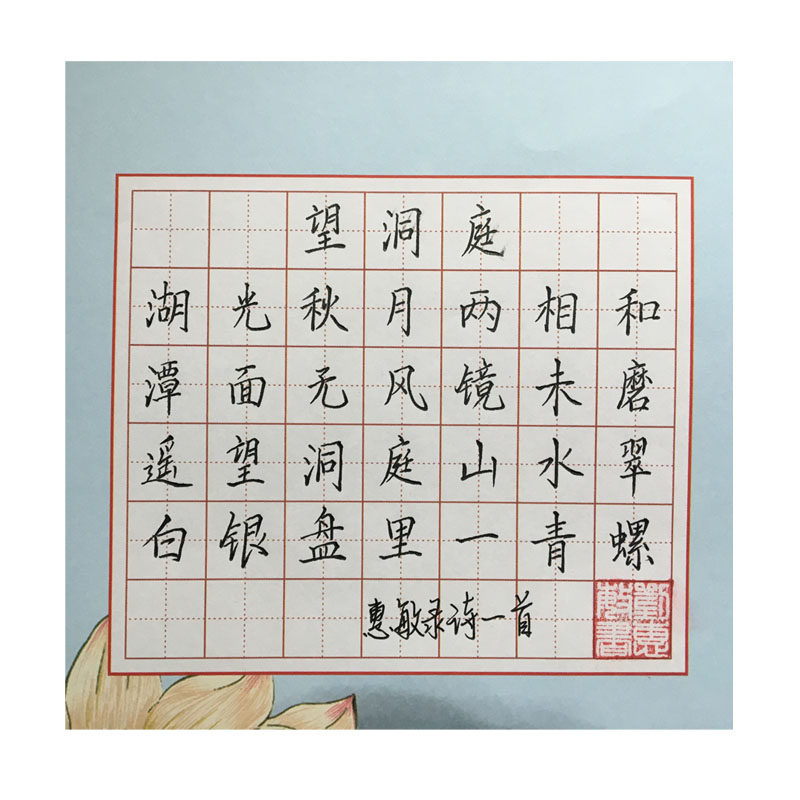 望洞庭
湖光秋月两相和
潭面无风镜未磨
遥望洞庭山水翠
白银盘里一青螺
惠敏录诗一首